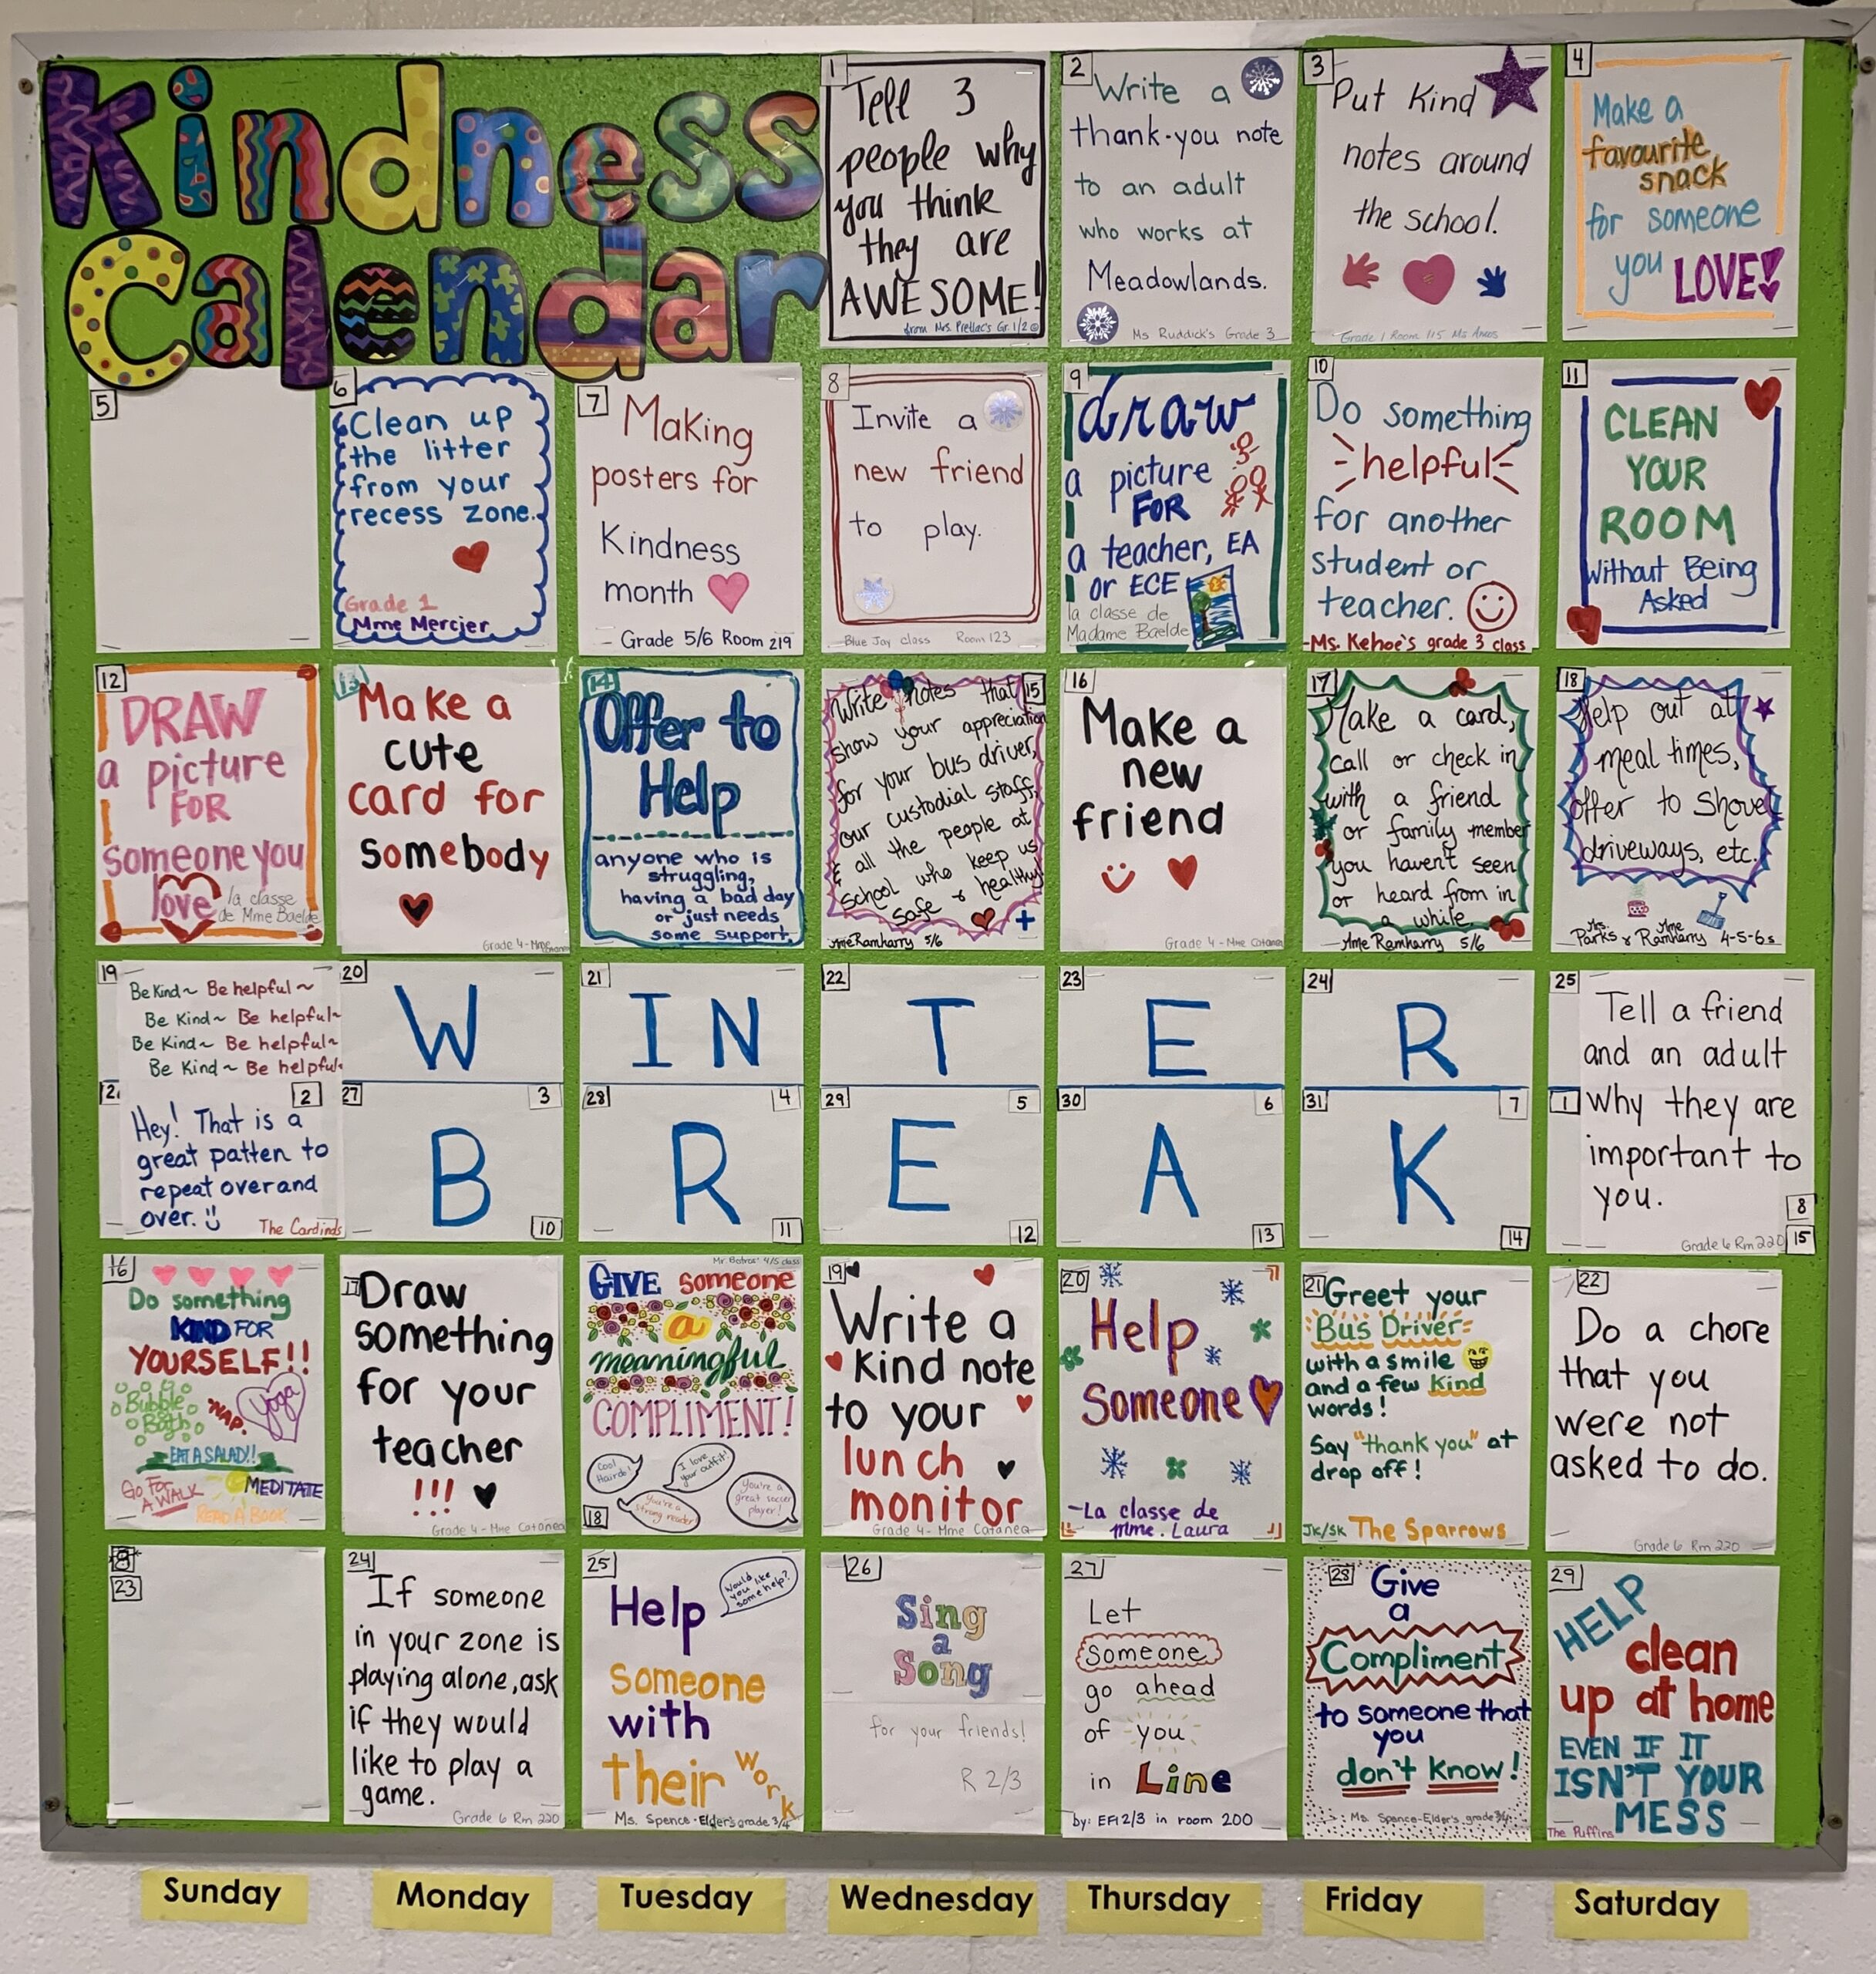 Kindness
Calendar
1
Tell 3
people why
you think
they are
AWESOME!
from Mrs. Pretlac's Gr. 1/2
2
Write a
thank-you note
to an adult
who works at
Meadowlands.
Ms Ruddick's Grade 3
3
Put Kind
notes around
the school.
Grade 1 Room 115 Ms
4
Make a
favourite
snack
for someone
you LOVE!
5
6
Clean up
the litter
from your
recess zone.
Grade 1
Mme Mercier
7
Making
posters for
Kindness
month
Grade 5/6 Room 219
8
Invite a
new friend
to play.
Blue Jay class Room 123
9
draw
a picture
FOR
a teacher, EA
or ECE
la classe de
Madame Baelde
10
Do something
helpful
for another
student or
teacher.
-Ms. Kehoe's grade 3 class
11
CLEAN
YOUR
ROOM
Without Being
Asked
12
DRAW
a picture
FOR
someone you
love
la classe
de Mme Baelde
13
Make a
cute
card for
somebody
Grade 4 - Mme
14
Offer to
Help
anyone who is
struggling,
having a bad day
or just needs
some support.
15
Write notes that
show your appreciation
for your bus driver,
our custodial staff,
& all the people at
school who keep us
safe & healthy!
Mme Ramharry 5/6
16
Make a
new
friend
Grade 4 - Mme Catanea
17
Make a card,
call or check in
with a friend
or family member
you haven't seen
or heard from in
a while.
Mme Ramharry 5/6
18
Help out at
meal times,
offer to shovel
driveways, etc.
Mrs. Parks & Mme Ramharry 4-5-6s
19
Be Kind ~ Be helpful ~
Be Kind ~ Be helpful ~
Be Kind ~ Be helpful ~
Be Kind ~ Be helpful ~
2
Hey! That is a
great patten to
repeat over and
over.
The Cardinals
20
W
21
IN
22
T
23
E
24
R
27
3
B
10
28
4
R
11
29
5
E
12
30
6
A
13
31
7
K
14
25
Tell a friend
and an adult
1
why they are
important to
you.
8
15
Grade 6 Rm 220
16
Do something
KIND FOR
YOURSELF!!
Bubble
Bath
NAP.
Yoga
EAT A SALAD!!
GO FOR
A WALK
MEDITATE
READ A BOOK
17
Draw
something
for your
teacher
!!!
Grade 4 - Mme Catanea
Mr. Botros' 4/5 class
GIVE someone
a
meaningful
COMPLIMENT!
Cool
Hairdo!
I love
your outfit!
You're a
strong reader!
You're a
great soccer
player!
18
19
Write a
Kind note
to your
lunch
monitor
Grade 4 - Mme Catanea
20
Help
Someone
-La classe de
mme. Laura
21
Greet your
Bus Driver
with a smile
and a few kind
words!
Say "thank you" at
drop off!
JK/SK The Sparrows
22
Do a chore
that you
were not
asked to do.
Grade 6 Rm 220
23
24
If someone
in your zone is
playing alone, ask
if they would
like to play a
game.
Grade 6 Rm 220
25
Would
you like
some help?
Help
someone
with
their work
Ms. Spence-Elder's grade 3/4
26
Sing
a
Song
for your friends!
R 2/3
27
Let
someone
go ahead
of you
in Line
by: EFI 2/3 in room 200
28
Give
a
Compliment
to someone that
you
don't know!
Ms. Spence-Elder's grade 3/4
29
HELP
clean
up at home
EVEN IF IT
ISN'T YOUR
MESS
The Puffins
Sunday
Monday
Tuesday
Wednesday
Thursday
Friday
Saturday